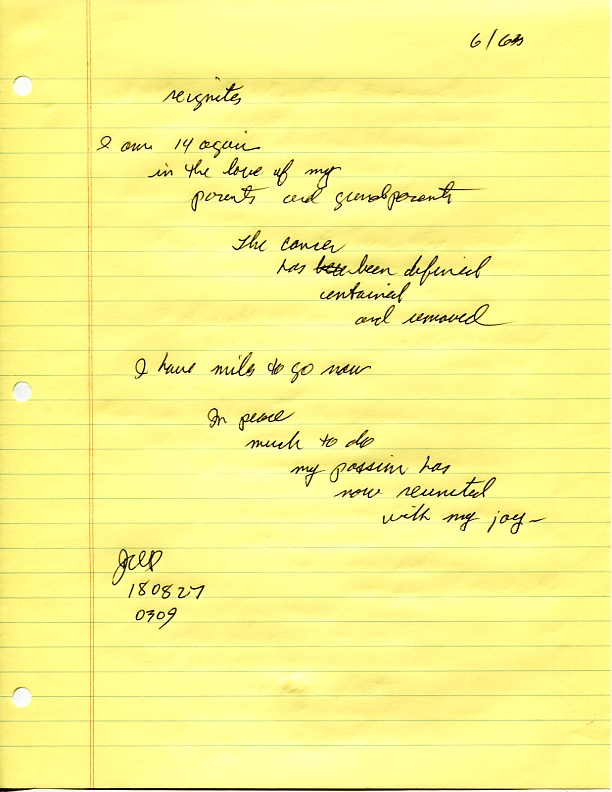 6/6
reignites
I am 14 again
in the love of my
parents and grandparents
The cancer
has been defined
contained
and removed
I have miles to go now
In peace
much to do
my passion has
now reunited
with my joy—
180827
0309